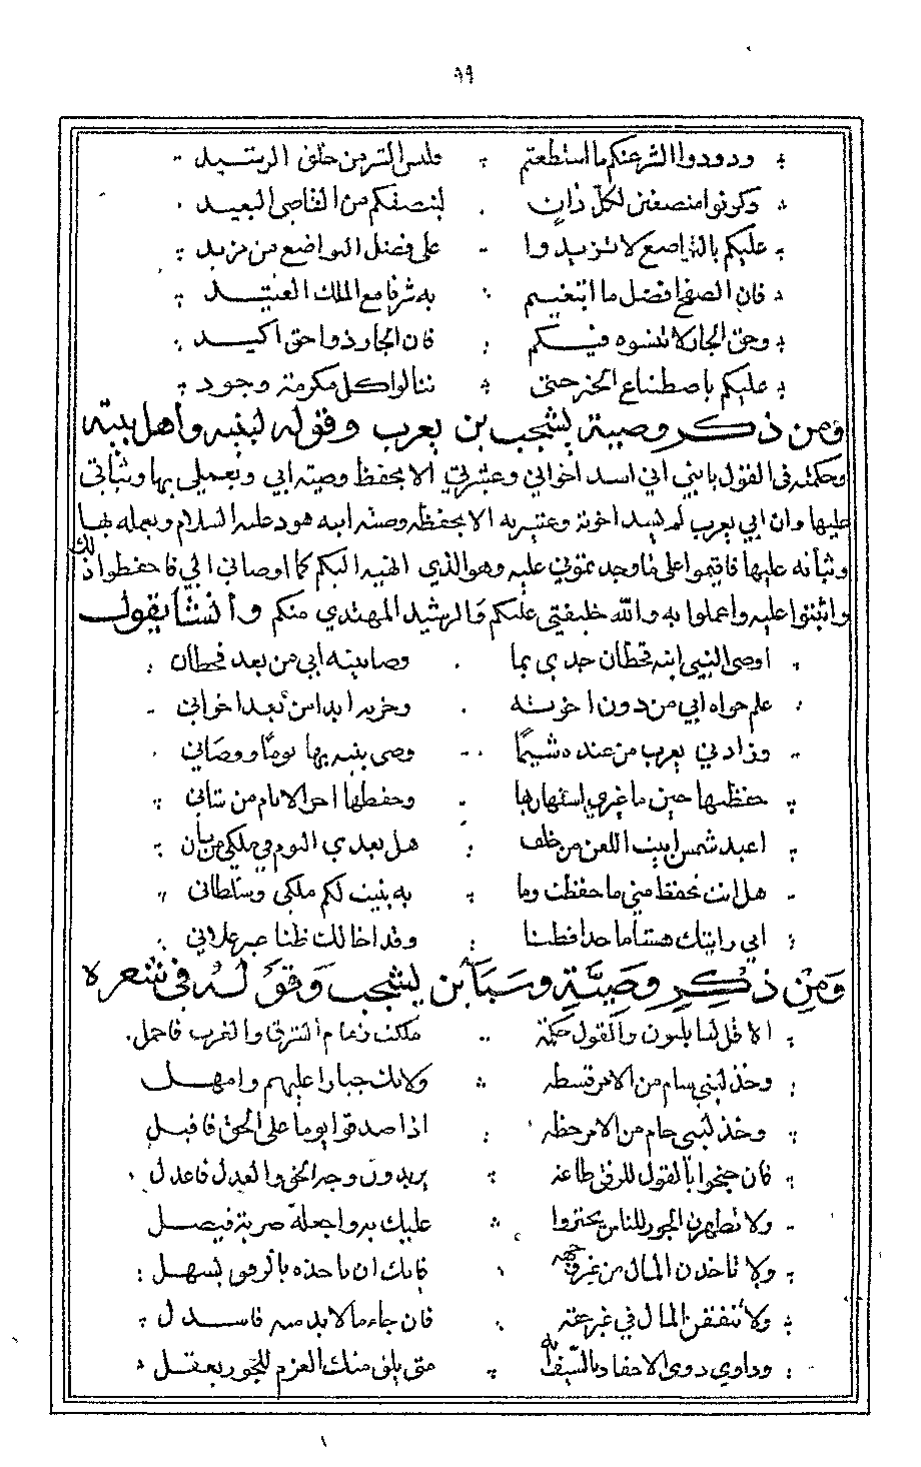 ٨٩
وذودوا الشر عنكم ما استطعتم فليس الشر من خلق الرشيد
وكونوا منصفين لكل دان لينصفكم من القاصي البعيد
عليكم بالتواضع لا تزيدوا على فضل التواضع من مزيد
فان الصفح افضل ما ابتغيتم به شرفا مع الملك العتيد
وحق الجار لا تنسوه فيكم فان الجار ذو احق اكيد
عليكم باصطناع الخير حتى تنالوا كل مكرمة وجود
ومن ذكر وصية يشجب بن يعرب وقوله لبنيه وأهل بيته
وحكمته في القول يا بني اني اسد اخواني وعشيرتي الا بحفظ وصيته ابي وبعملي بها وثباتي
عليها وان ابي يعرب لم يسد اخوته وعشيرته الا بحفظه وصية ابيه هود عليه السلام وبعمله بها
وثباته عليها فاقيموا على ما وجدتموني عليه وهو الذي انهيه اليكم كما اوصاني ابي فاحفظوا ذلك
واثبتوا عليه واعملوا به والله خليفتي عليكم والرشيد المهتدي منكم وأنشأ يقول
اوصى النبي ابنه قحطان جدي بما وصا بنيه ابي من بعد قحطان
علم حواه ابي من دون اخوته وخزيه ابدا من بعد اخواني
وزادني يعرب من عنده شيما وصى بنيه بها يوما ووصاني
حفظتها حين ما غيري استهان بها وحفظها احر الايام من شاني
اعبد شمس ابيت اللعن من خلف هل بعدي اليوم في ملكي من بان
هل انت تحفظ مني ما حفظت وما به بنيت لكم ملكي وسلطاني
اني رايتك هشاما حدا فطنا وقد اخالك ظنا غير علاني
ومن ذكر وصية وسبأ بن يشجب وقوله في شعره
الا قل لبابليون والقول حكمة ملكت زمام الشرق والغرب فاجمل
وخذ لبني سام من الامر قسطه ولا تك جبارا عليهم وامهل
وخذ لبني حام من الامر حظه اذا صدقوا يوما على الحق فاقبل
فان جنحوا بالقول للرفق طاعة يريدون وجه الحق والعدل فاعدل
ولا تظهرن الجور للناس يجتروا عليك به واجعله ضربة فيصل
ولا تاخذن المال من غير حقه فانك ان تاخذه بالرفق يسهل
ولا تنفقن المال في غير حقه فان جاء ما لا بد منه فابذل
وداوي ذوى الاحقاد بالسيف انه متى يلق منك العزم للجور يعقل